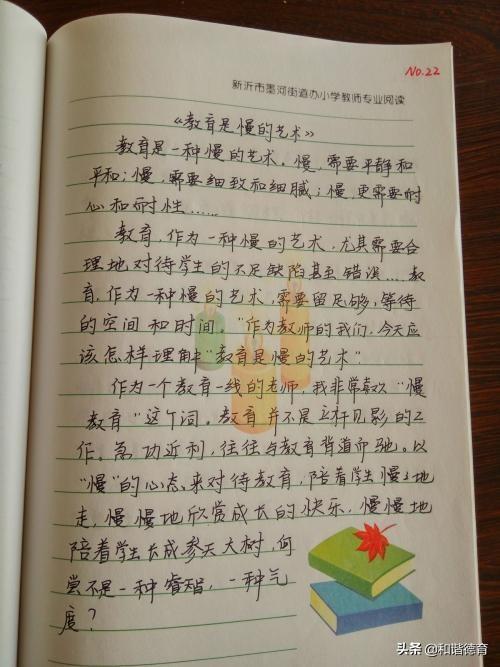 No.22
新沂市墨河街道办小学教师专业阅读
《教育是慢的艺术》
教育是一种慢的艺术。慢，需要平静和
平和；慢，需要细致和细腻；慢，更需要耐
心和耐性……
教育，作为一种慢的艺术，尤其需要合
理地对待学生的不足缺陷甚至错误……教
育，作为一种慢的艺术，需要留足够，等待
的空间和时间。"作为教师的我们，今天应
该怎样理解"教育是慢的艺术"
作为一个教育一线的老师，我非常喜欢"慢
教育"这个词。教育并不是立杆见影的工
作。急功近利，往往与教育背道而驰。以
"慢"的心态来对待教育，陪着学生慢慢地
走，慢慢地欣赏成长的快乐，慢慢地
陪着学生长成参天大树，何
尝不是一种睿智，一种气
度？
头条@和谐德育